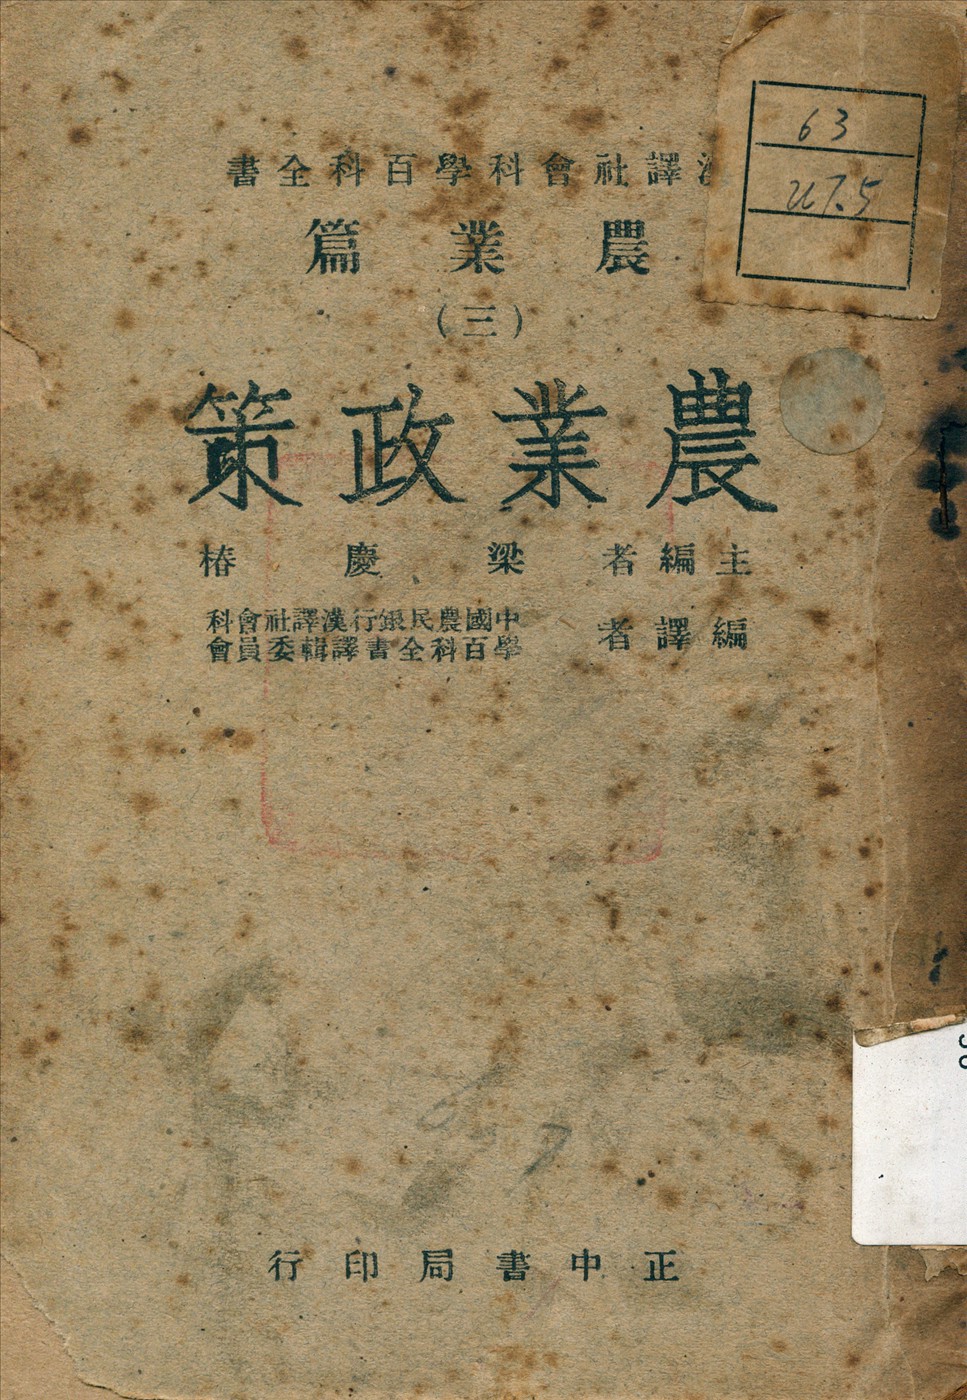 漢譯社會科學百科全書
農業篇
(三)
農業政策
主編者 梁慶椿
編譯者 中國農民銀行漢譯社會科
學百科全書譯輯委員會
正中書局印行
63